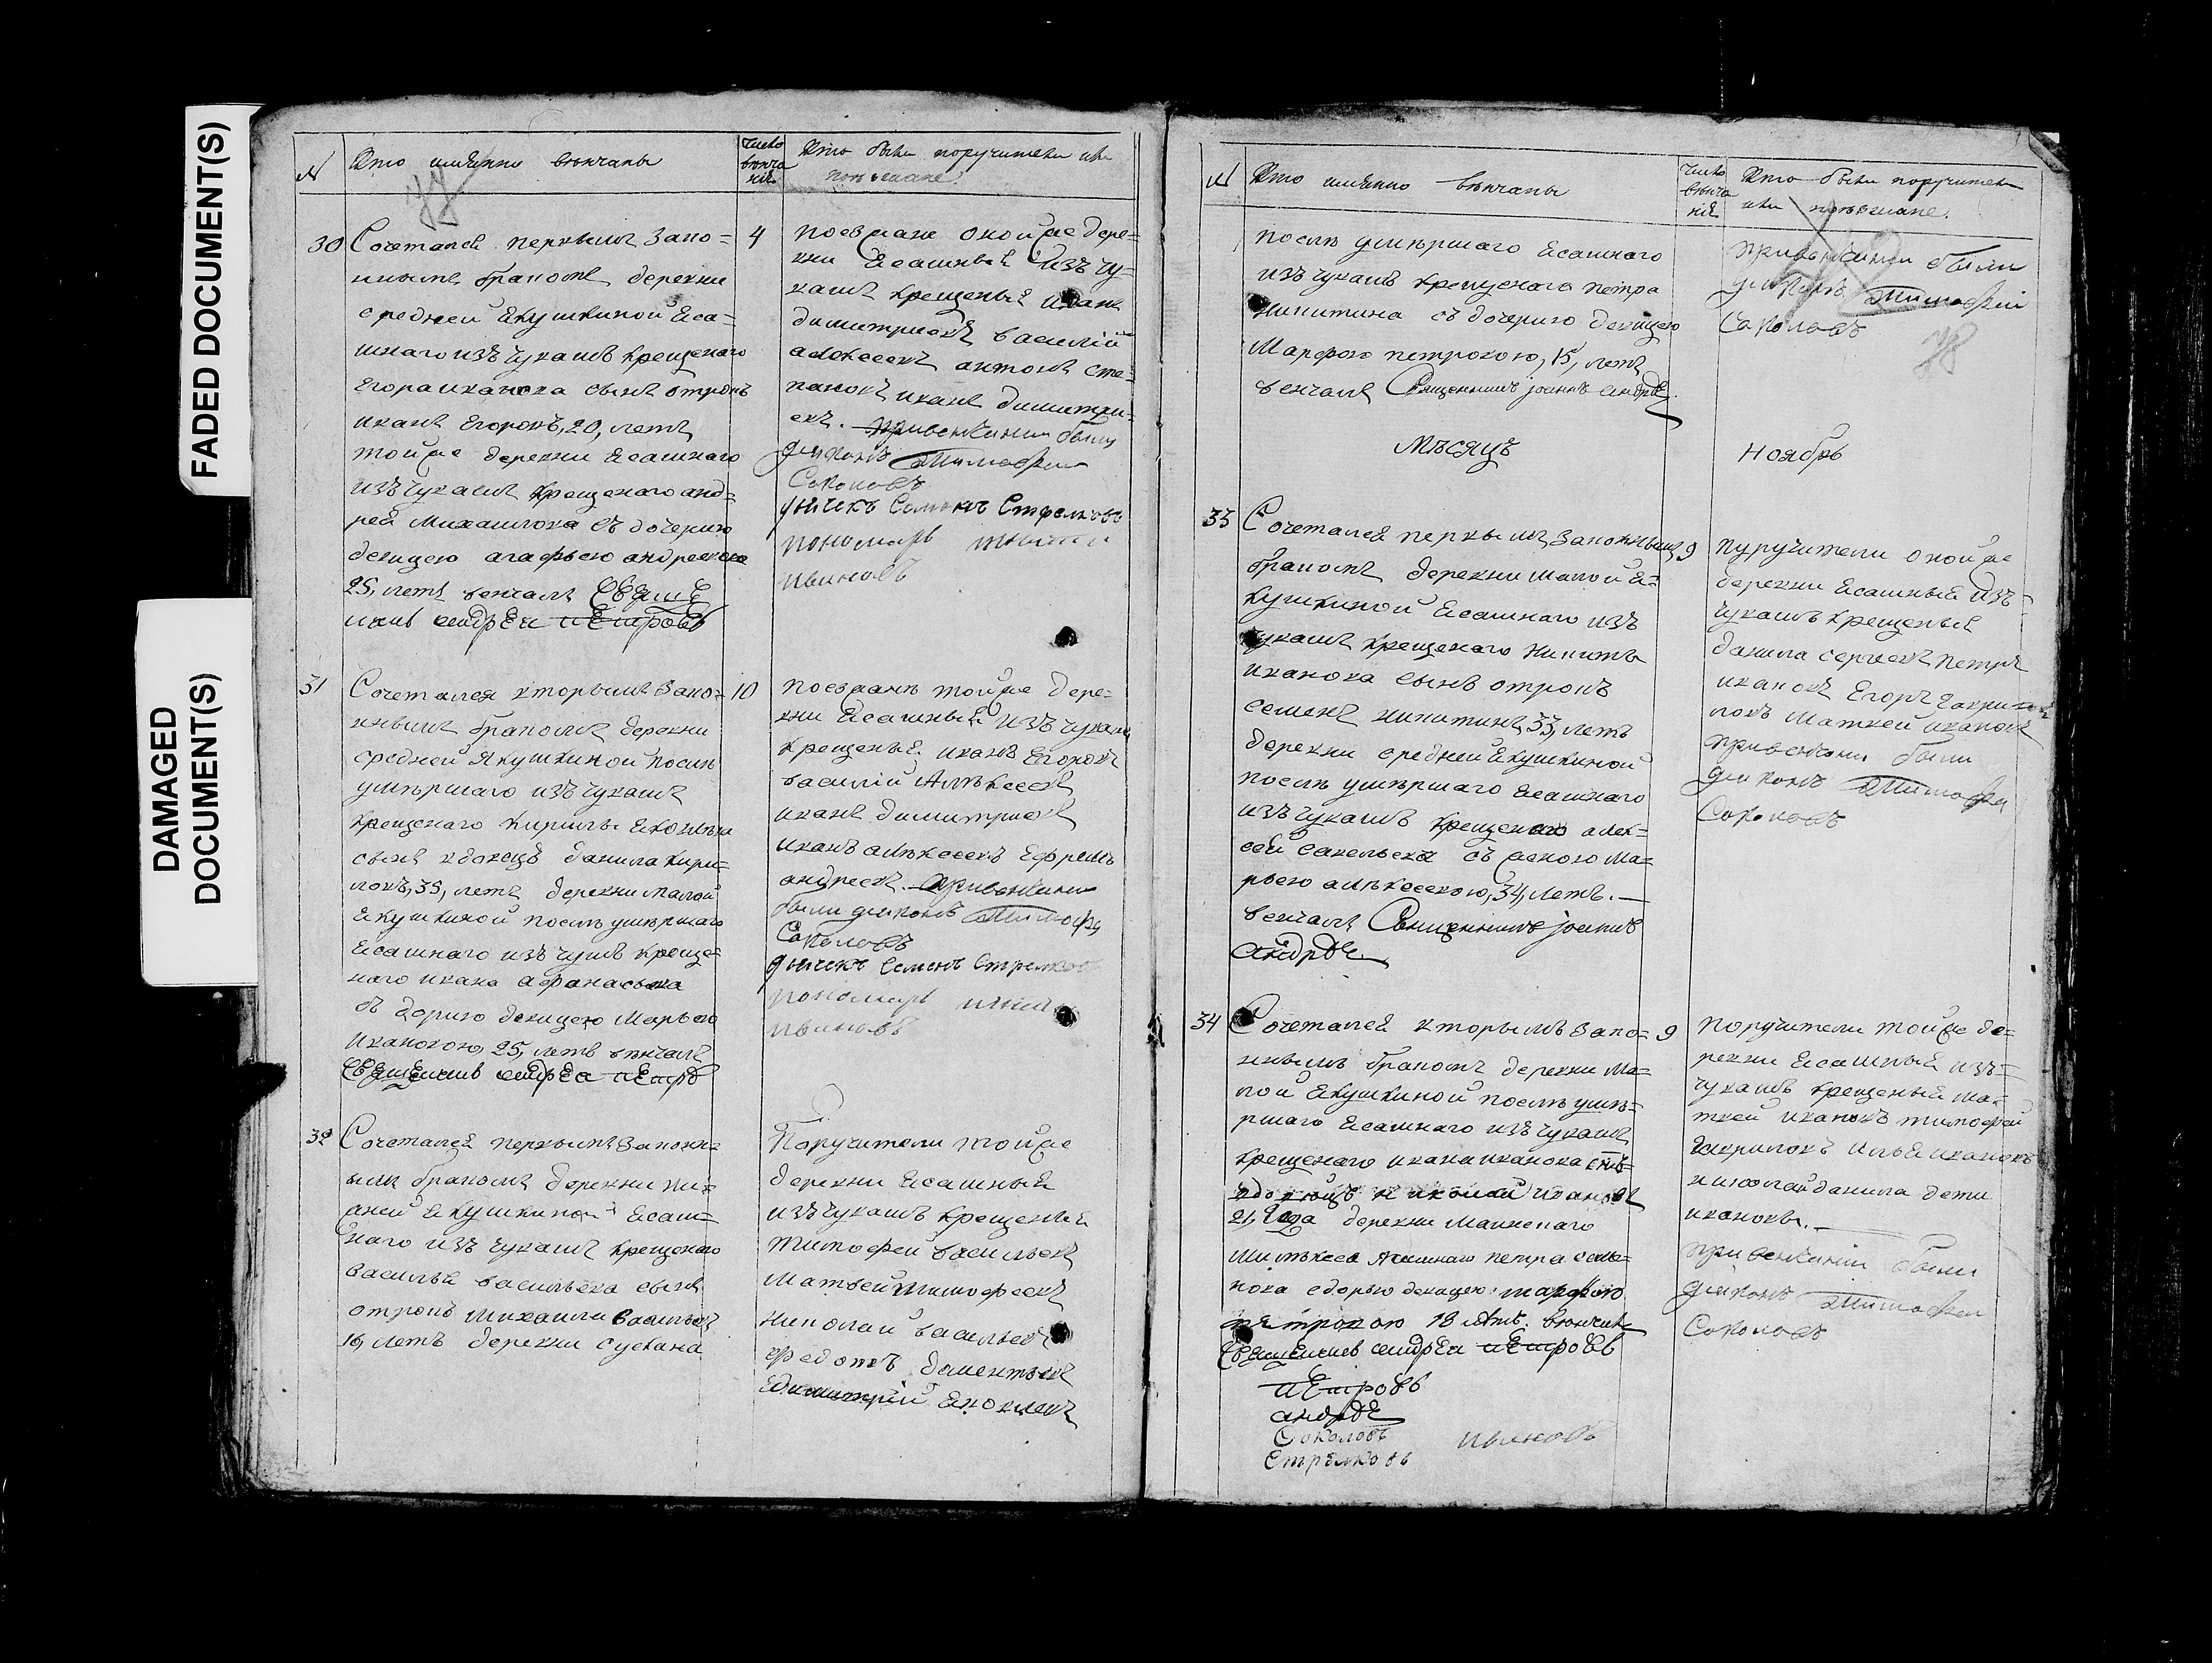 FADED DOCUMENT(S)
DAMAGED
DOCUMENT(S)
№ Кто имянно венчаны
Число
венча
ния
Кто были поручители или
поезжане.
30 Сочетался первымъ зако=
ннымъ бракомъ деревни
средней Екушкиной Есаш=
шнаго изъ чувашъ крещенаго
Егора иванова сынъ отрокъ
иванъ Егоровъ, 20, летъ
тойже деревни Есашнаго
изъ чувашъ крещенаго анд=
рея Михаилова съ дочерию
девицею агафьею андреевою
25, летъ венчалъ Священ
никъ андреи петровъ
4
поезжане оной же дере=
вни Есашный изъ чу=
вашъ крещеный иванъ
димитриевъ василий
алексеевъ антонъ сте=
пановъ иванъ димитри=
евъ. привенчании были
диаконъ Тимофей
Соколовъ
дьячекъ Семенъ Стрелковъ
пономарь
ивановъ
31 Сочетался вторымъ зако=
ннымъ бракомъ деревни
средней Якушкиной после
умершаго изъ чувашъ
крещенаго Кирилы Яковлева
сынъ вдовецъ данила кири=
ловъ, 35, летъ деревни малой
Екушкиной после умершаго
Есашнаго изъ чувшъ креще=
наго ивана афанасьева
съ дорию девицею Марьею
ивановою, 25, летъ венчалъ
Священникъ андреа петровъ
10
поезжане тойже дере=
вни Есашный изъ чувашъ
крещеный иванъ Егоровъ
василий Алексеевъ
иванъ димитриевъ
иванъ алексеевъ Ефремъ
андреевъ. привенчании
были диаконъ Тимофей
Соколовъ
дьячекъ Семенъ Стрелковъ
пономарь
ивановъ
32 Сочетался первымъ законн=
ымъ бракомъ деревни ни=
жней Екушкиной Есаш=
наго изъ чувашъ крещенаго
василья васильева сынъ
отрокъ михаила васильевъ
19, летъ деревни сускана
Поручители тойже
деревни Есашный
изъ чувашъ крещеный
Тимофей васильевъ
Матвей тимофеевъ
николай васильевъ
федотъ дементьевъ
димитрий Яковлевъ
№ Кто имянно венчаны
Число
венча
ния
Кто были поручители
или поезжане.
после умершаго Есашнаго
изъ чувашъ крещенаго петра
Никитина съ дочерию девицею
Марфою петровою, 15, летъ
венчалъ Священникъ Iоаннъ андрее
привенчании были
диаконъ Тимофей
Соколовъ
78
Месяцъ ноябрь
33 Сочетался первымъ законнымъ
бракомъ деревни малой Е=
кушкиной Есашнаго изъ
чувашъ крещенаго Никиты
иванова сынъ отрокъ
семенъ никитинъ, 33, летъ
деревни средней Екушкиной
после умершаго Есашнаго
изъ чувашъ крещенаго алек=
сей савельева съ женою ма=
рьею алексеевою, 34, летъ.
венчалъ Священникъ Iоаннъ
андрее
9
пуручители оной же
деревни Есашный изъ=
чувашъ крещеный
данила сергеевъ петръ
ивановъ Егоръ гаври
ловъ Матвей ивановъ
привенчани были
диаконъ Тимофей
Соколовъ
34 Сочетался вторымъ зако=
ннымъ бракомъ деревни ма=
лой Екушкиной после уме=
ршаго Есашнаго изъ чувашъ
крещенаго ивана иванова снъ=
вдовецъ николай ивановъ
21, года деревни
петра семе=
нова девицею марфою
петровою 18 летъ. венчалъ
Священникъ андреи петровъ
9
поручители тойже де=
ревни Есашный изъ=
чувашъ крещеный ма=
твей ивановъ тимофей
гавриловъ илья ивановъ
николай данила дети
ивановы.
привенчании были
диаконъ Тимофей
Соколовъ
петровъ
андрее
Соколовъ
ивановъ
Стрелковъ